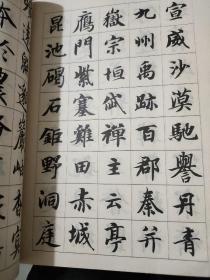 宣威沙漠馳譽丹青
九州禹跡百郡秦并
嶽宗恒岱禪主云亭
鴈門紫塞雞田赤城
昆池碣石鉅野洞庭